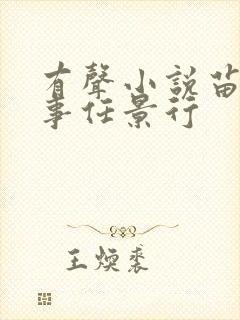 有聲小說笛
事任景行
王煥裘